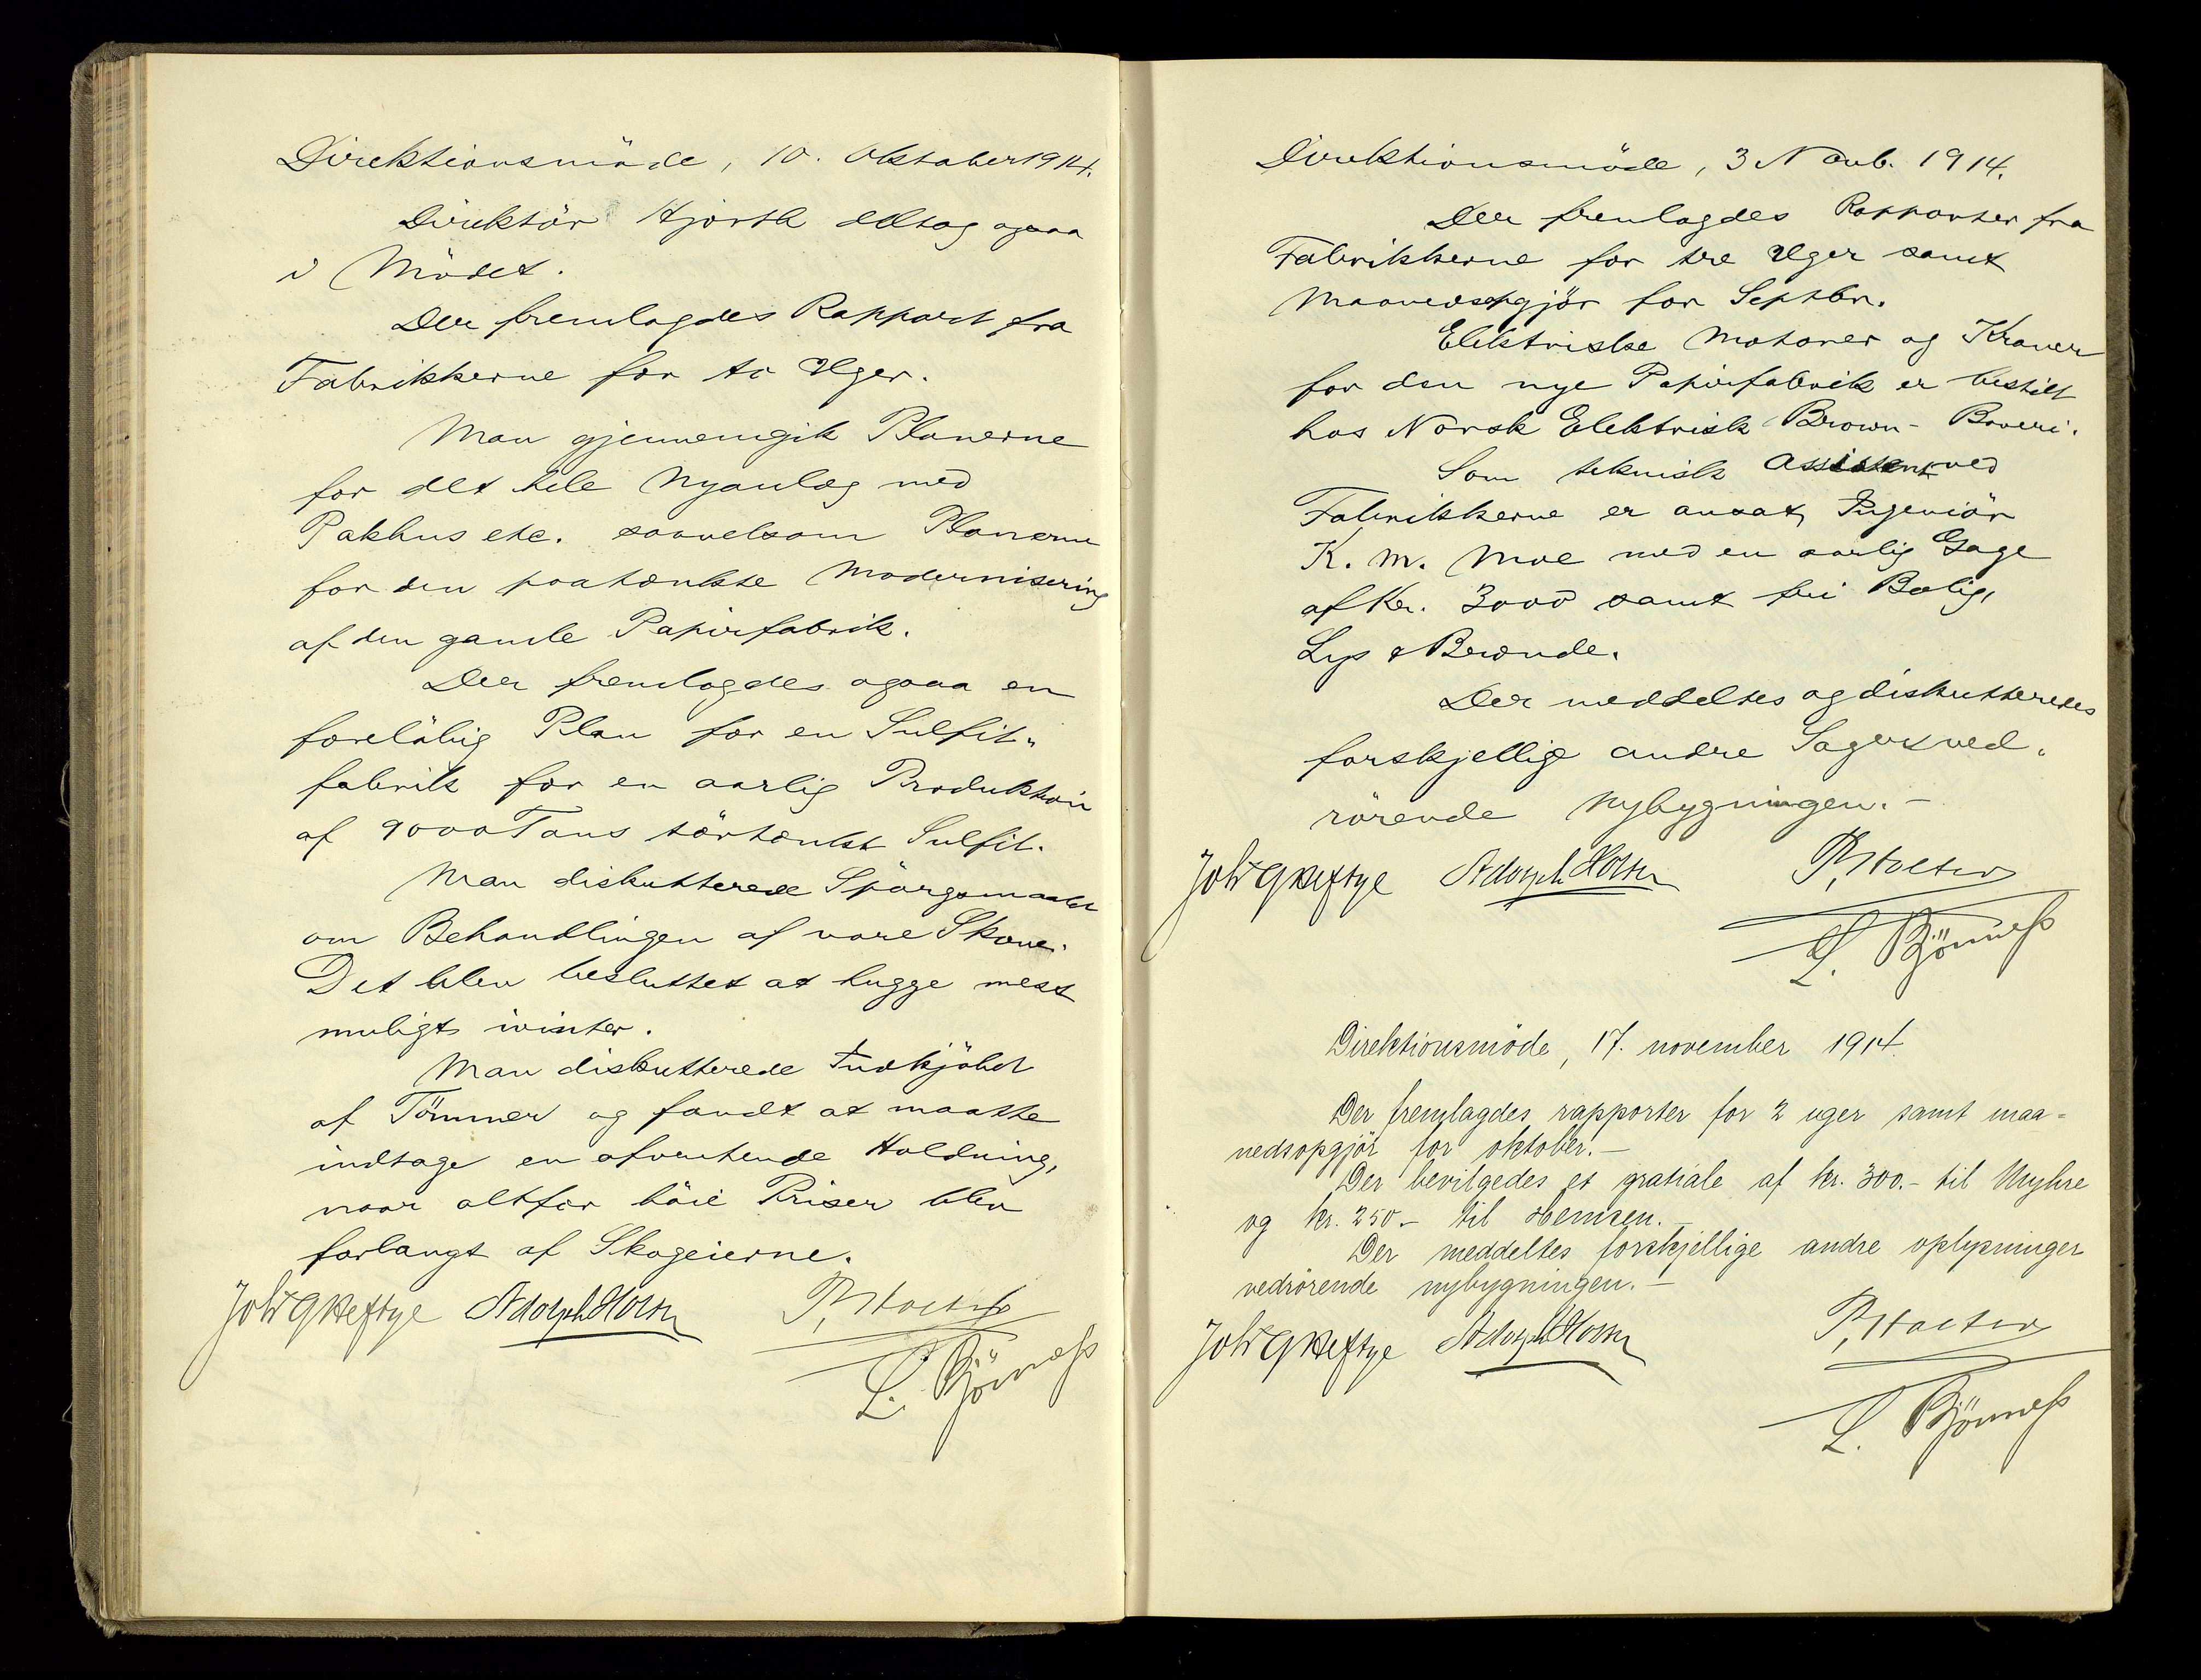 Direktionsmöde, 10. Oktober 1914.
Direktör Hjorth deltog ogsaa
i Mödet.
Der fremlagdes Rapport fra
Fabrikkerne for to Uger.
Man gjennemgik Planerne
for det hele Nyanlæg med
Pakhus etc. saavelsom Planerne
for den paatænkte Modernisering
af den gamle Papirfabrik.
Der fremlagdes ogsaa en
foreløbig Plan for en Sulfit-
fabrik for en aarlig Produktion
af 9000 Tons törtænkt Sulfit.
Man diskutterede Spörgsmaalet
om Behandlingen af vore Skove.
Det blev besluttet at hugge mest
muligt ivinter.
Man diskutterede Indkjöbet
af Tömmer og fandt at maatte
indtage en afventende Holdning,
naar altfor höie Priser blev
forlangt af Skogeierne.
Joh. G Heftye Adolph Holm P. Holter
L. Björness
Direktionsmöde, 3 Novb. 1914.
Der fremlagdes Rapporter fra
Fabrikkerne for tre Uger samt
Maanedsopgjör for Septbr.
Elektriske Motorer og Kraner
for den nye Papirfabrik er bestilt
hos Norsk Elektrisk Brown-Boveri.
Som teknisk Assistent ved
Fabrikkerne er ansat Ingeniör
K. M. Moe med en aarlig Gage
af Kr. 3000 samt fri Bolig,
Lys & Brænde.
Der meddeltes og diskutteredes
forskjellige andre Sager ved-
rörende Nybygningen.-
Joh. G Heftye Adolph Holm P. Holter
L. Björness
Direktionsmöde, 17. november 1914.
Der fremlagdes rapporter for 2 uger samt maa-
nedsopgjör for oktober.-
Der bevilgedes et gratiale af kr. 300.- til Myhre
og kr. 250.- til Hemsen.-
Der meddeltes forskjellige andre oplysninger
vedrörende nybygningen.-
Joh. G Heftye Adolph Holm P. Holter
L. Björness